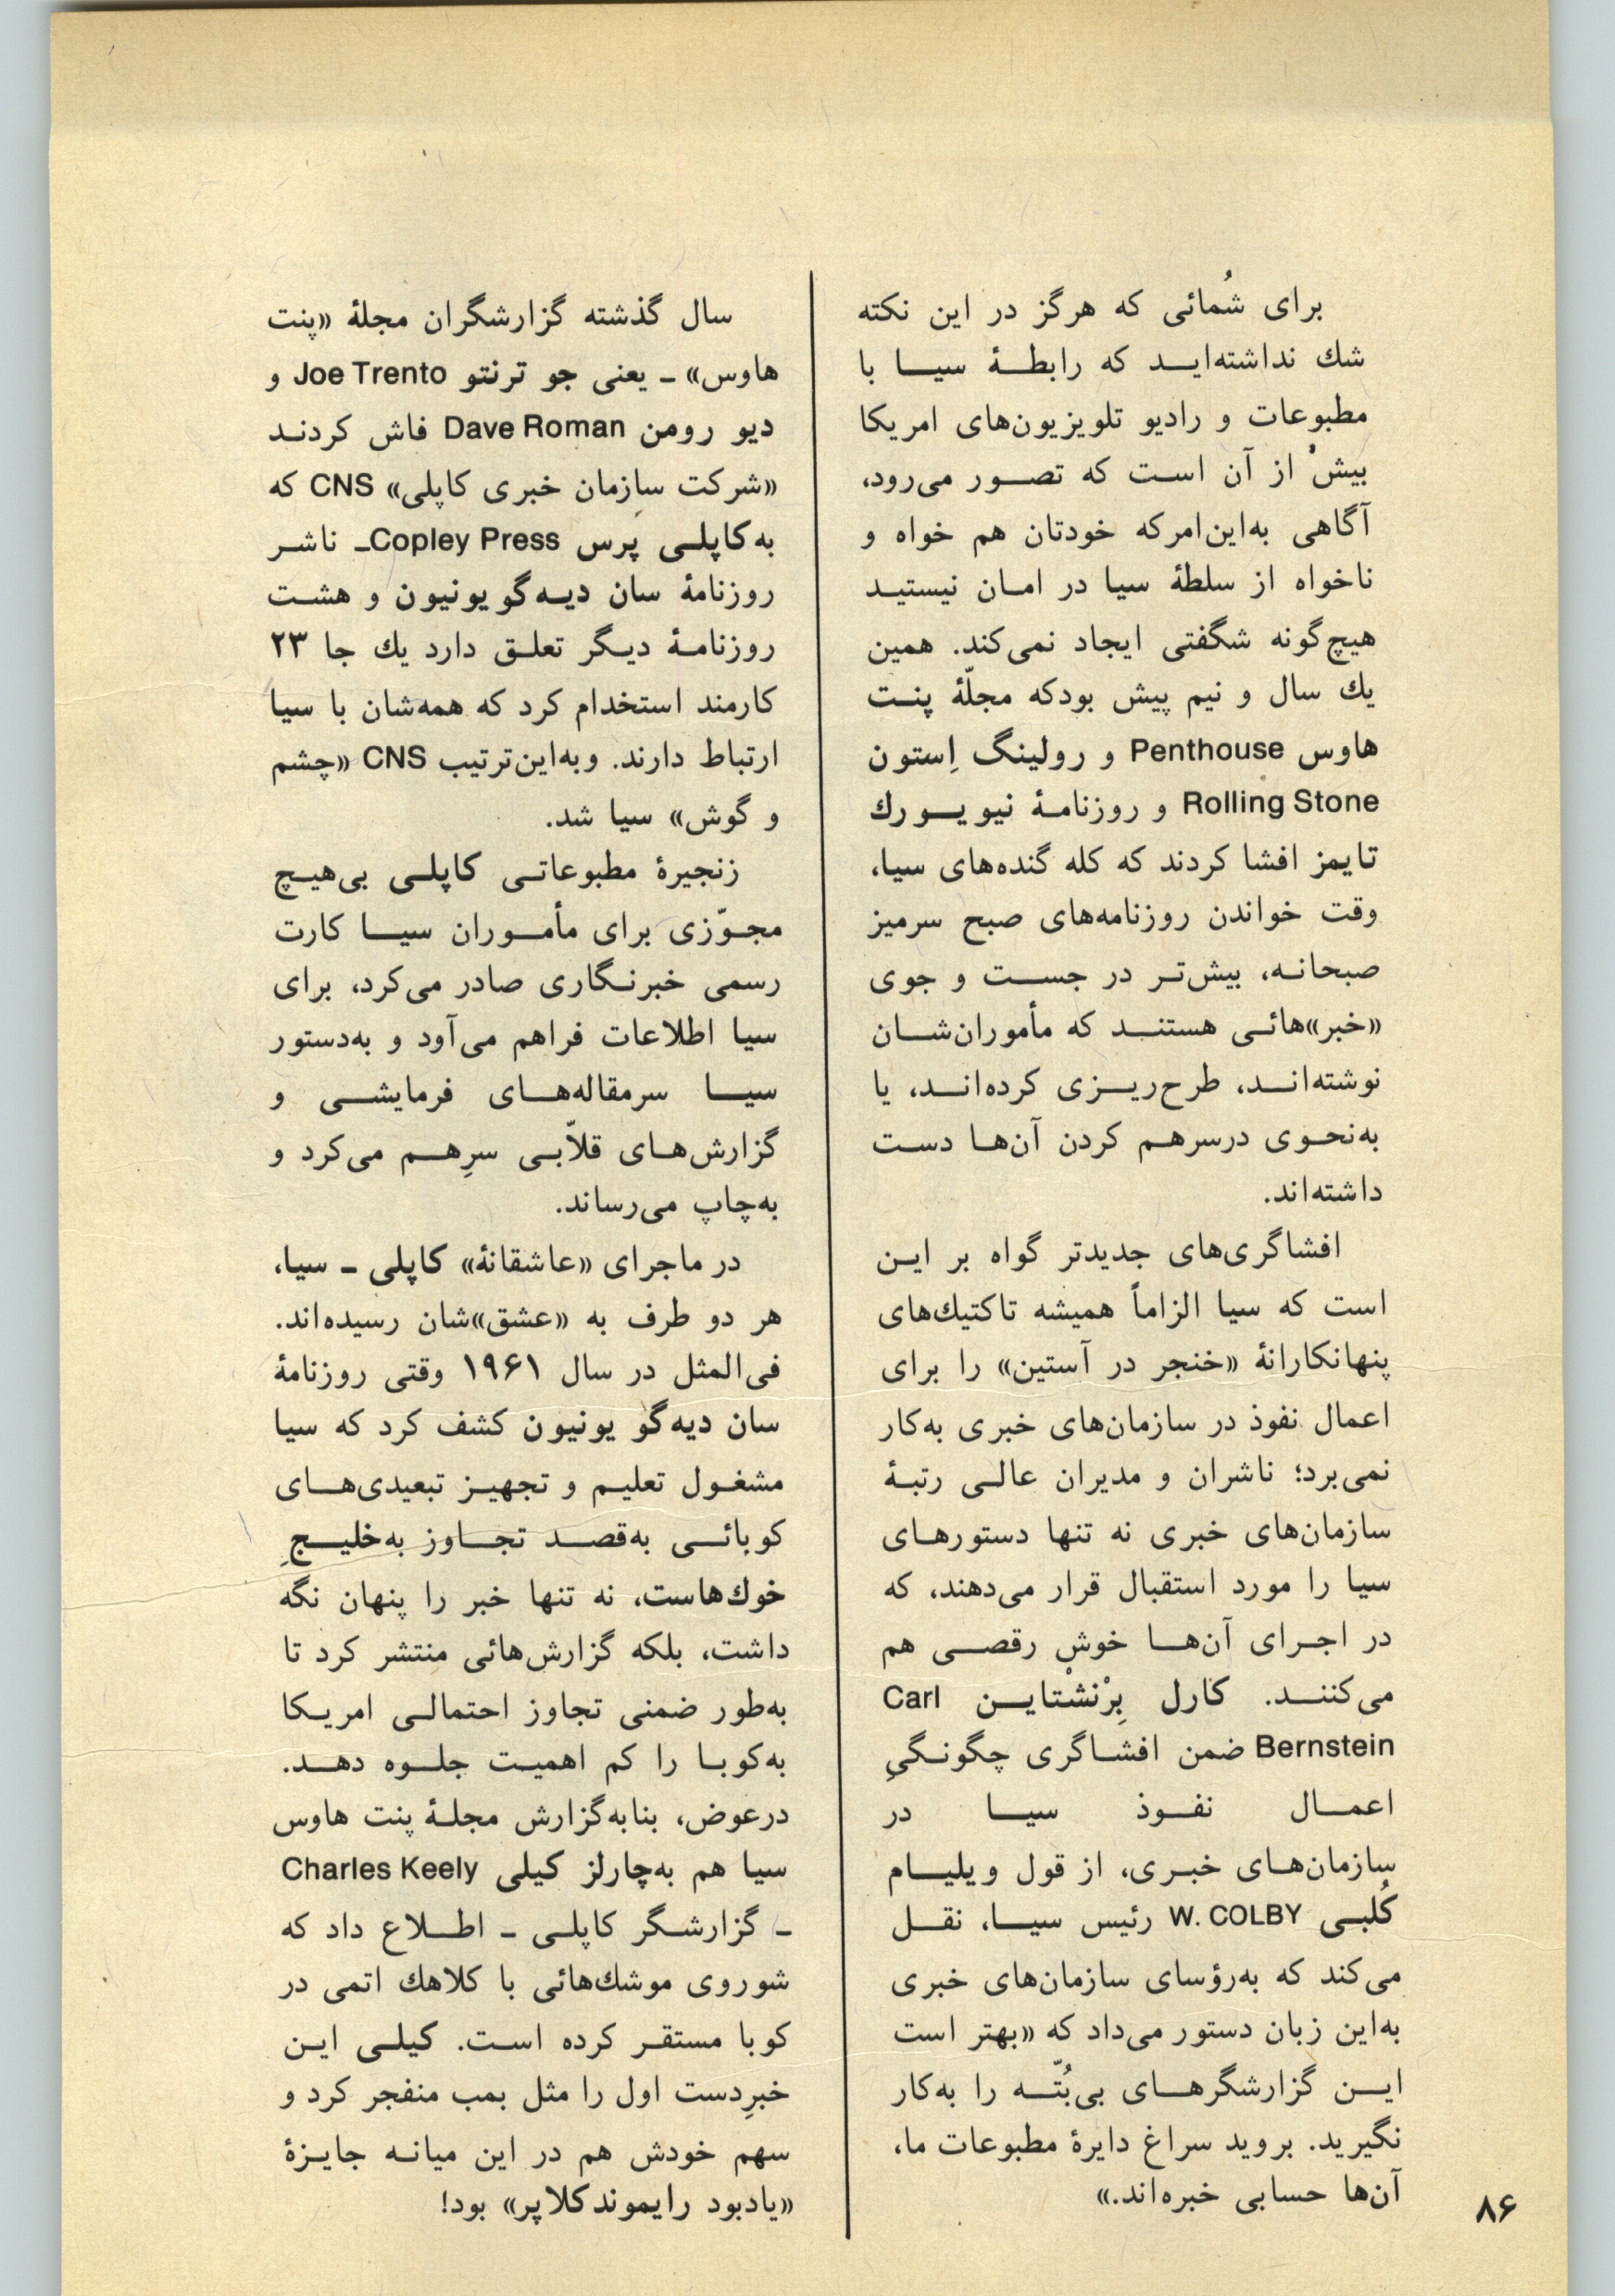 برای شُمائی که هرگز در این نکته
شك نداشته‌ایـد که رابطـهٔ سیـا با
مطبوعات و رادیو تلویزیون‌های امریکا
بیشْ از آن است که تصـور می‌رود،
آگاهی به‌این‌امرکه خودتان هم خواه و
ناخواه از سلطهٔ سیا در امـان نیستیـد
هیچ‌گونه شگفتی ایجاد نمی‌کند. همین
یك سال و نیم پیش بودکه مجلّهٔ پنـت
هاوس Penthouse و رولینگ اِستون
Rolling Stone و روزنامـهٔ نیویـورك
تایمز افشا کردند که کله گنده‌های سیا،
وقت خواندن روزنامه‌های صبح سرمیز
صبحانـه، بیش‌تـر در جسـت و جوی
«خبر»هائـی هستنـد که مأموران‌شـان
نوشته‌انـد، طرح‌ریـزی کرده‌انـد، یا
به‌نحـوی درسرهـم کردن آن‌هـا دسـت
داشته‌اند.
افشاگری‌های جدیدتر گواه بر ایـن
است که سیا الزاماً همیشه تاکتیك‌های
پنهانکارانهٔ «خنجر در آستین» را برای
اعمال نفوذ در سازمان‌های خبری به‌کار
نمی‌برد؛ ناشران و مدیران عالـی رتبـهٔ
سازمان‌های خبری نه تنها دستورهـای
سیا را مورد استقبال قرار می‌دهند، که
در اجـرای آن‌هـا خوش رقصـی هم
می‌کننـد. کارل بِرْنشْتایـن Carl
Bernstein ضمن افشـاگری چگونـگیِ
اعمـال نفـوذ سیـا در
سازمان‌هـای خبـری، از قول ویلیـام
کُلبـی W. COLBY رئیس سیـا، نقـل
می‌کند که به‌رؤسای سازمان‌های خبری
به‌این زبان دستور می‌داد که «بهتر است
ایـن گزارشگرهـای بی‌بُتّـه را به‌کار
نگیرید. بروید سراغ دایرهٔ مطبوعات ما،
آن‌ها حسابی خبره‌اند.»
سال گذشته گزارشگران مجلهٔ «پنت
هاوس» ـ یعنی جو ترنتو Joe Trento و
دیو رومن Dave Roman فاش کردنـد
«شرکت سازمان خبری کاپلی» CNS که
به‌کاپلـی پرِس Copley Pressـ ناشـر
روزنامهٔ سان دیـه‌گو یونیون و هشـت
روزنامـهٔ دیـگر تعلـق دارد یك جا ۲۳
کارمند استخدام کرد که همه‌شان با سیا
ارتباط دارند. وبه‌این‌ترتیب CNS «چشم
و گوش» سیا شد.
زنجیرهٔ مطبوعاتـی کاپلـی بی‌هیـچ
مجـوّزی برای مأمـوران سیـا کارت
رسمی خبرنـگاری صادر می‌کرد، برای
سیا اطلاعات فراهم می‌آود و به‌دستور
سیـا سرمقاله‌هـای فرمایشـی و
گزارش‌هـای قلاّبـی سرِهـم می‌کرد و
به‌چاپ می‌رساند.
در ماجرای «عاشقانهٔ» کاپلی ـ سیا،
هر دو طرف به «عشق»شان رسیده‌اند.
فی‌المثل در سال ۱۹۶۱ وقتی روزنامهٔ
سان دیه‌گو یونیون کشف کرد که سیا
مشغـول تعلیـم و تجهیـز تبعیدی‌هـای
کوبائـی به‌قصـد تجـاوز به‌خلیـجِ
خوك‌هاست، نه تنها خبر را پنهان نگه
داشت، بلکه گزارش‌هائی منتشر کرد تا
به‌طور ضمنی تجاوز احتمالـی امریـکا
به‌کوبـا را کم اهمیـت جلـوه دهـد.
درعوض، بنابه‌گزارش مجلـهٔ پنت هاوس
سیا هم به‌چارلز کیلی Charles Keely
ـ گزارشـگر کاپلـی ـ اطـلاع داد که
شوروی موشك‌هائی با کلاهك اتمی در
کوبا مستقـر کرده اسـت. کیلـی ایـن
خبرِدست اول را مثل بمب منفجر کرد و
سهم خودش هم در این میانـه جایـزهٔ
«یادبود رایموندکلاپر» بود!
۸۶